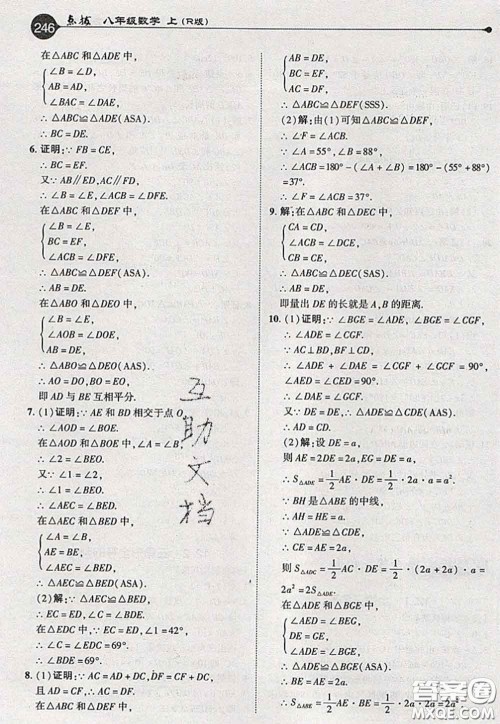 246 点拨 八年级数学 上(R版)
在△ABC和△ADE中,
∠B=∠D,
AB=AD,
∠BAC=∠DAE,
∴△ABC≌△ADE(ASA).
∴BC=DE.
6. 证明:∵FB=CE,
∴BC=EF.
又∵AB∥ED,AC∥FD,
∴∠B=∠E,∠ACB=∠DFE.
在△ABC和△DEF中,
∠B=∠E,
BC=EF,
∠ACB=∠DFE,
∴△ABC≌△DEF(ASA).
∴AB=DE.
在△ABO和△DEO中,
∠B=∠E,
∠AOB=∠DOE,
AB=DE,
∴△ABO≌△DEO(AAS).
∴AO=DO,BO=EO,
即AD与BE互相平分.
7. (1)证明:∵AE和BD相交于点O,
∴∠AOD=∠BOE.
在△AOD和△BOE中,∠A=∠B,
∴∠BEO=∠2.
又∵∠1=∠2,
∴∠1=∠BEO.
∴∠AEC=∠BED.
在△AEC和△BED中,
∠A=∠B,
AE=BE,
∠AEC=∠BED,
∴△AEC≌△BED(ASA).
(2)解:∵△AEC≌△BED,
∴EC=ED,∠C=∠BDE.
在△EDC中,∵EC=ED,∠1=42°,
∴∠C=∠EDC=69°.
∴∠BDE=69°.
8. (1)证明:∵AC=AD+DC,DF=CF+DC,
且AD=CF,
∴AC=DF.
在△ABC和△DEF中,
AB=DE,
BC=EF,
AC=DF,
∴△ABC≌△DEF(SSS).
(2)解:由(1)可知△ABC≌△DEF,
∴∠F=∠ACB.
∵∠A=55°,∠B=88°,
∴∠ACB=180°-(∠A+∠B)=180°-(55°+88°)
=37°.
∴∠F=∠ACB=37°.
9. 解:在△ABC和△DEC中,
CA=CD,
∠ACB=∠DCE,
CB=CE,
∴△ABC≌△DEC(SAS).
∴AB=DE.
即量出DE的长就是A,B的距离.
10. (1)证明:∵∠BGE=∠ADE,∠BGE=∠CGF,
∴∠ADE=∠CGF.
∵AC⊥BD,BF⊥CD,
∴∠ADE+∠DAE=∠CGF+∠GCF=90°,
∴∠DAE=∠GCF.
∴AD=CD.
(2)解:设DE=a,
则AE=2DE=2a,EG=DE=a,
∴S△ADE=1/2AE·DE=1/2·2a·a=a².
∵BH是△ABE的中线,
∴AH=HE=a.
∵AD=CD,AC⊥BD,
∴CE=AE=2a,
则S△ADC=1/2AC·DE=1/2·(2a+2a)·a=
2a²=2S△ADE.
在△ADE和△BGE中,
∠AED=∠BEG,
DE=GE,
∠ADE=∠BGE,
∴△ADE≌△BGE(ASA).
∴BE=AE=2a.
∴S△ABE=1/2AE·BE=1/2·2a·
互助文档
答案圈
MXQE.COM